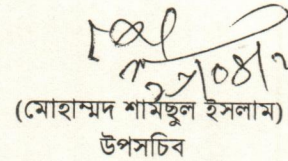 (মোহাম্মদ শামিছুল ইসলাম)
উপসচিব